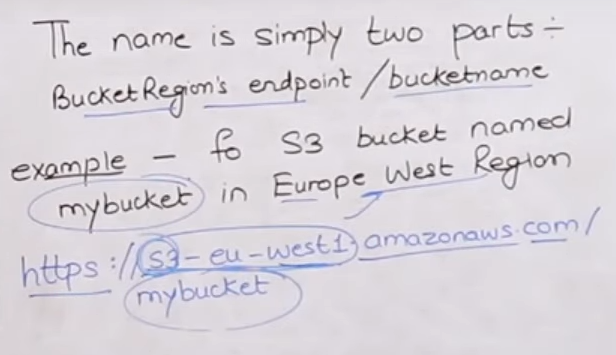 The name is simply two parts÷
BucketRegion's endpoint /bucketname
example - fo S3 bucket named
mybucket in Europe West Region
https://S3-eu-west1.amazonaws.com/
mybucket